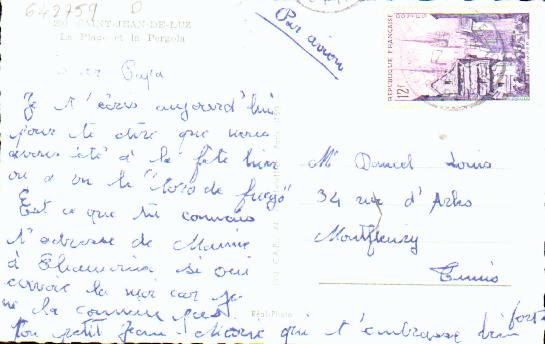 642759 D
SAINT-JEAN-DE-LUZ
La Plage et la Pergola
Par avion
Cher Papa
Je t'écris aujourd'hui
pour te dire que nous
avons été à la fête hier
on a vu le "toro de fuego"
Est ce que tu connais
l'adresse de Mamie
à si oui
envoie la moi car je
ne la connais pas.
Ton petit Jean-Pierre qui t'embrasse bien fort
REPUBLIQUE FRANÇAISE
POSTES
12F
Mr Daniel Louis
34 rue d'Arles
Montfleury
Tunis
Réel-Photo